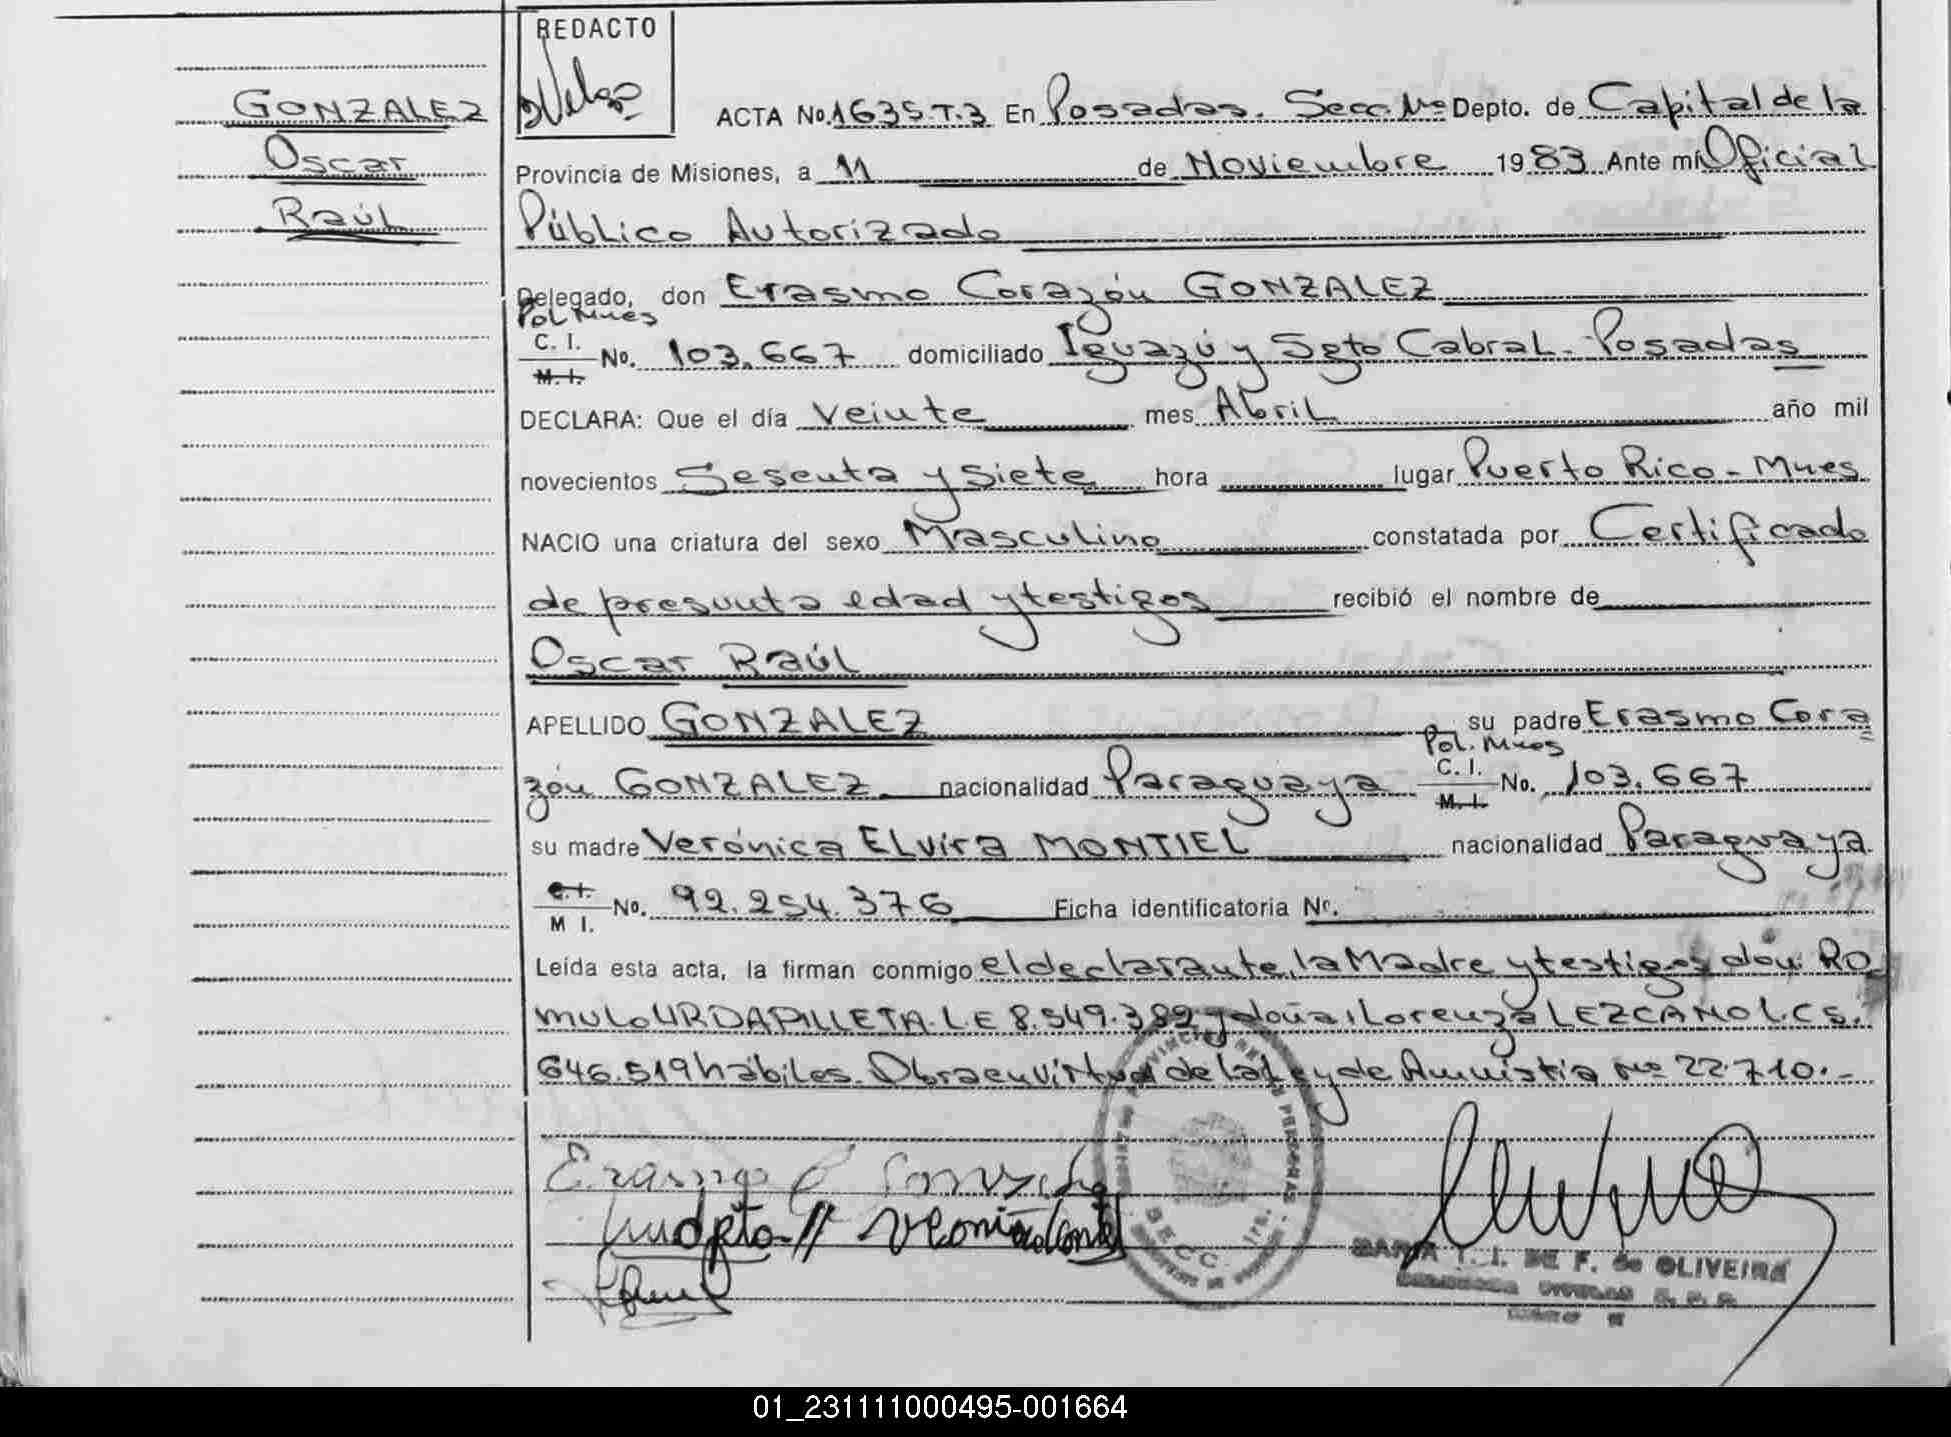 REDACTO
GONZALEZ
Oscar
Raúl
ACTA No. 1635.T.3 En Posadas. Secc. Nº Depto. de Capital de la
Provincia de Misiones, a 11 de Noviembre 1983 Ante mí Oficial
Público Autorizado
Delegado, don Erasmo Corazón GONZALEZ
Pol Mnes
C. I.
M. I.
No. 103.667 domiciliado Iguazú y Sgto Cabral - Posadas
DECLARA: Que el día veinte mes Abril año mil
novecientos Sesenta y Siete hora lugar Puerto Rico - Mnes
NACIO una criatura del sexo Masculino constatada por Certificado
de presunta edad y testigos recibió el nombre de
Oscar Raúl
APELLIDO GONZALEZ su padre Erasmo Cora
Pol. Mnes
zón GONZALEZ nacionalidad Paraguaya C. I. M. I. No. 103.667
su madre Verónica Elvira MONTIEL nacionalidad Paraguaya
C. I.
M I.
No. 92.254.376 Ficha identificatoria Nº.
Leída esta acta, la firman conmigo el declarante, la Madre y testigos don: RO
mulo URDAPILLETA. L.E 8.549.389 y doña: Lorenza LEZCANO L.C 5.
646.519 hábiles. Obra en virtud de la Ley de Amnistia Nº 22.710.-
PROVINCIAL PERSONAS
SECC. 1ra.
MARIA T. I. DE F. de OLIVEIRA
01_231111000495-001664